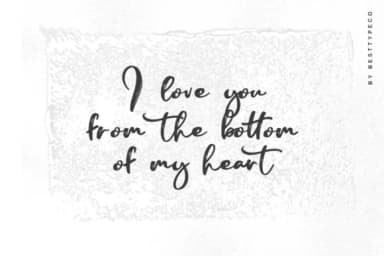 I love you
from the bottom
of my heart
BY BESTTYPECO